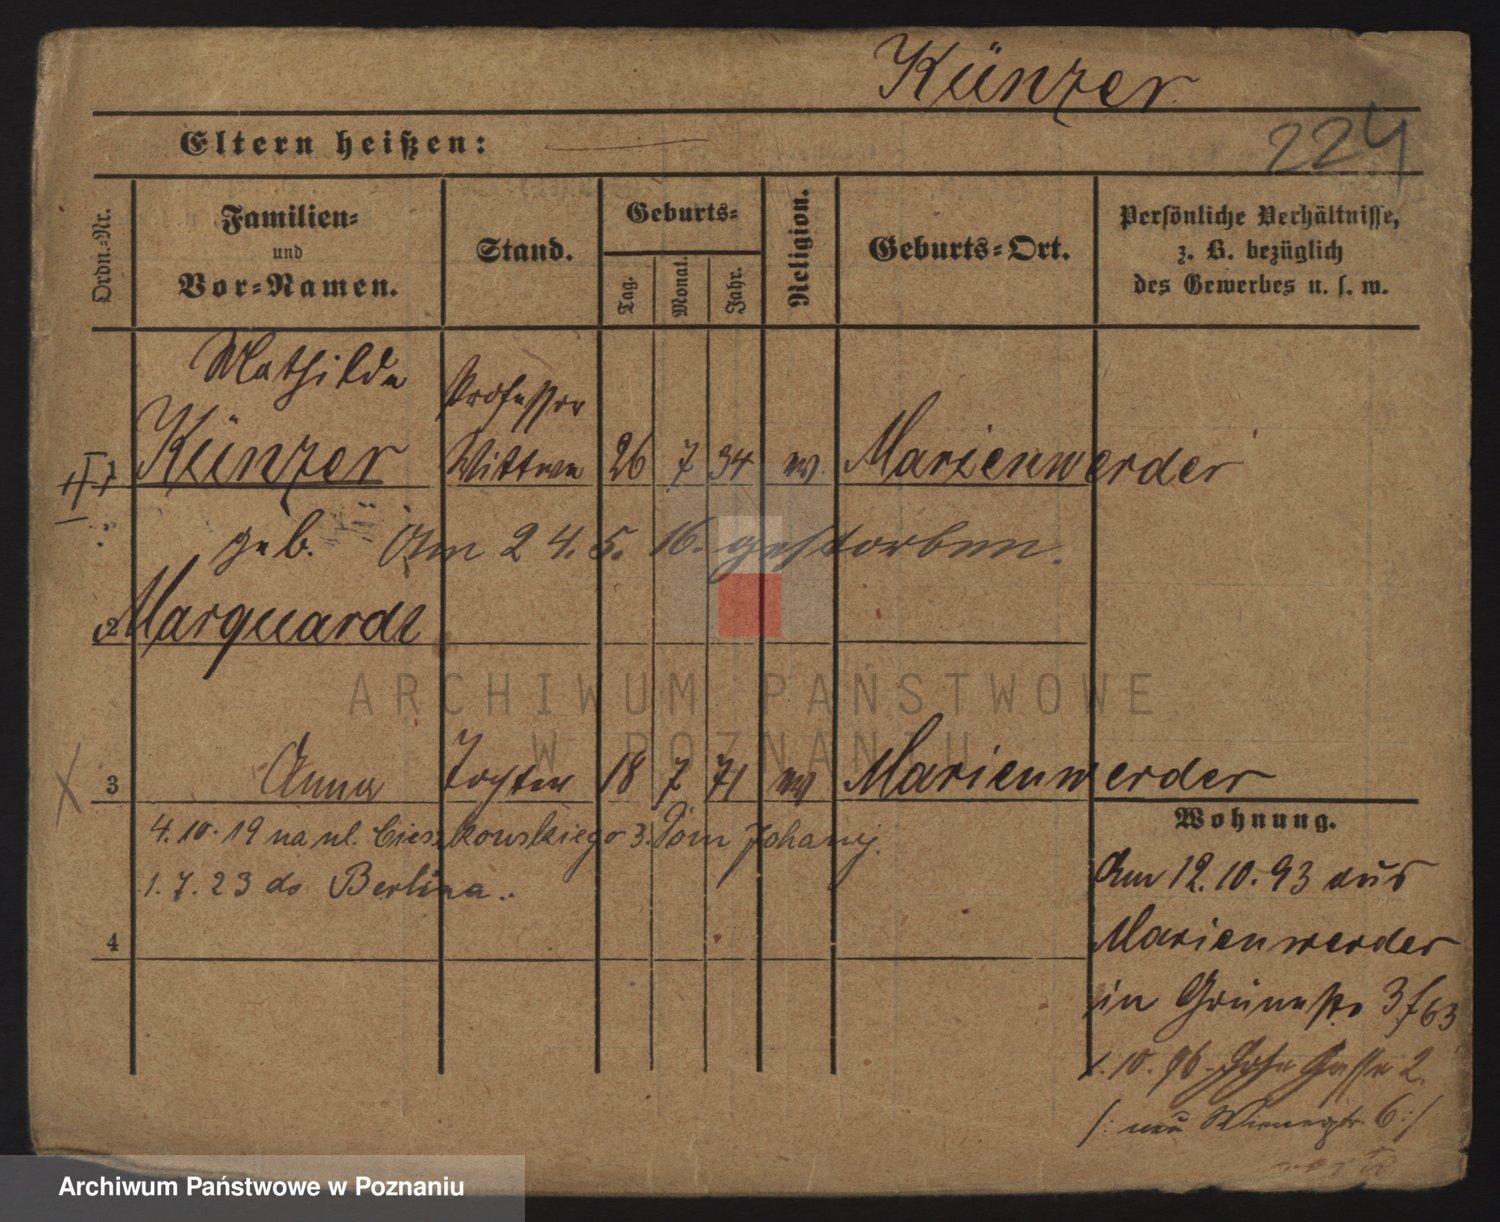 Künzer
224
Eltern heißen:
Ordn.-Nr.
Familien-
und
Vor-Namen.
Stand.
Geburts-
Tag.
Monat.
Jahr.
Religion.
Geburts-Ort.
Persönliche Verhältnisse,
z. B. bezüglich
des Gewerbes u. s. w.
Mathilde
Professor
II 1 Künzer Wittwe 26 7 34 ev. Marienwerder
geb. Am 24. 5. 16. gestorben.
2 Marquardt
ARCHIWUM PAŃSTWOWE
W POZNANIU
3 Anna Tochter 18 7 71 ev Marienwerder
4.10.19 na ul. Cieszkowskiego 3. Dom Johany.
1.7.23 do Berlina.
4
Wohnung.
Am 12.10.93 aus
Marienwerder
in Grünestr 3 f 63
1.10.96 Hohe Gasse 2.
/: neu 6 :/
Archiwum Państwowe w Poznaniu